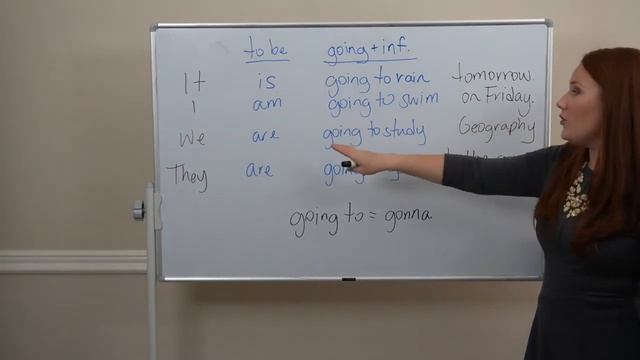 to be going + inf.
It is going to rain tomorrow.
I am going to swim on Friday.
We are going to study Geography
They are going
going to = gonna